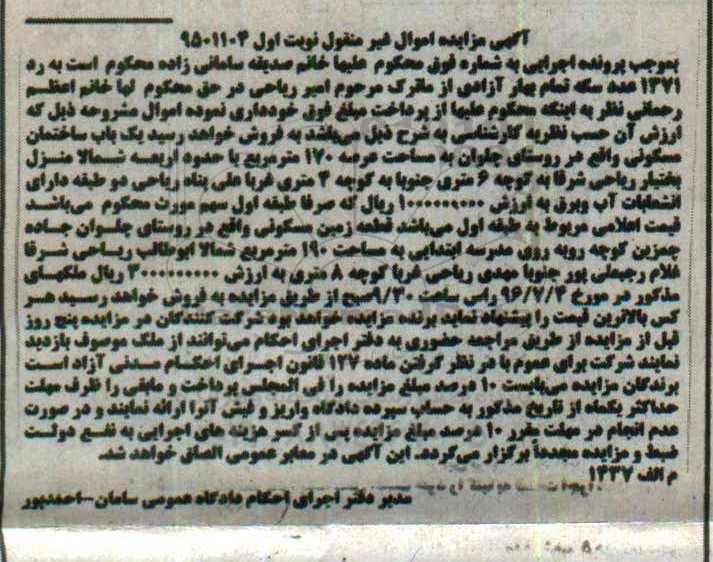 آگهی مزایده اموال غیر منقول نوبت اول ۹۵۰۱۱۰۴
بموجب پرونده اجرایی به شماره فوق محکوم علیها خانم صدیقه سامانی زاده محکوم است به رد
۱۳۷۱ عدد سکه تمام بهار آزادی از ماترک مرحوم امیر ریاحی در حق محکوم لها خانم اعظم
رحمانی نظر به اینکه محکوم علیها از پرداخت مبلغ فوق خودداری نموده اموال مشروحه ذیل که
ارزش آن حسب نظریه کارشناسی به شرح ذیل میباشد به فروش خواهد رسید یک باب ساختمان
مسکونی واقع در روستای چلوان به مساحت عرصه ۱۷۰ مترمربع با حدود اربعه شمالا منزل
بختیار ریاحی شرقا به کوچه ۶ متری جنوبا به کوچه ۴ متری غربا علی پناه ریاحی دو طبقه دارای
انشعابات آب وبرق به ارزش ریال که صرفا طبقه اول سهم مورث محکوم می‌باشد
قیمت اعلامی مربوط به طبقه اول می‌باشد قطعه زمین مسکونی واقع در روستای چلوان جاده
کوچه روبه روی مدرسه ابتدایی به مساحت ۱۹۰ مترمربع شمالا ابوطالب ریاحی شرقا
غلام رجبعلی پور جنوبا مهدی ریاحی غربا کوچه ۸ متری به ارزش ریال ملکهای
مذکور در مورخ ۹۶/۷/۴ راس ساعت ۹/۳۰صبح از طریق مزایده به فروش خواهد رسید هر
کس بالاترین قیمت را پیشنهاد نماید برنده مزایده خواهد بود شرکت کنندگان در مزایده پنج روز
قبل از مزایده از طریق مراجعه حضوری به دفتر اجرای احکام می‌توانند از ملک موصوف بازدید
نمایند شرکت برای عموم با در نظر گرفتن ماده ۱۲۷ قانون اجرای احکام مدنی آزاد است
برندگان مزایده میبایست ۱۰ درصد مبلغ مزایده را فی المجلس پرداخت و مابقی را ظرف مهلت
حداکثر یکماه از تاریخ مذکور به حساب سپرده دادگاه واریز و فیش آنرا ارائه نمایند و در صورت
عدم انجام در مهلت مقرر ۱۰ درصد مبلغ مزایده پس از کسر هزینه های اجرایی به نفع دولت
ضبط و مزایده مجدداً برگزار می‌گردد. این آگهی در معابر عمومی الصاق خواهد شد.
م الف ۱۳۳۷
مدیر دفتر اجرای احکام دادگاه عمومی سامان-احمدپور